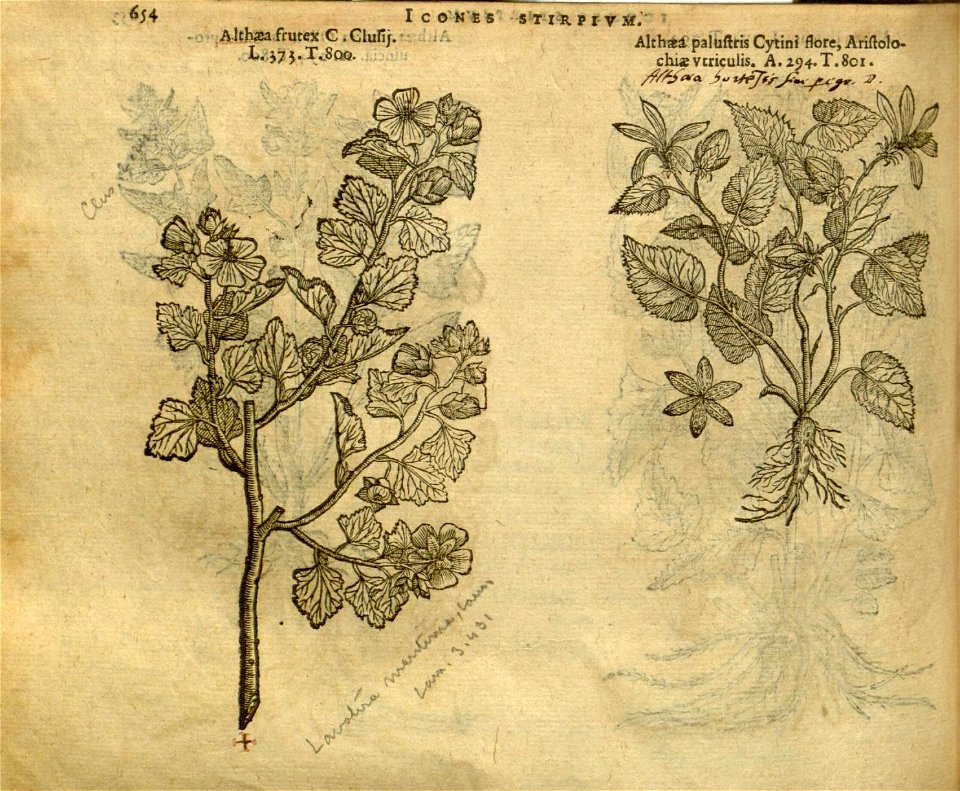 654
ICONES STIRPIVM.
Althæa frutex C. Clusij.
L. 373. T. 800.
Althæa palustris Cytini flore, Aristolo-
chiæ vtriculis. A. 294. T. 801.
Althæa hortēsis siue D.
Clus
Lavatera maritima,
Lam. 3. 431